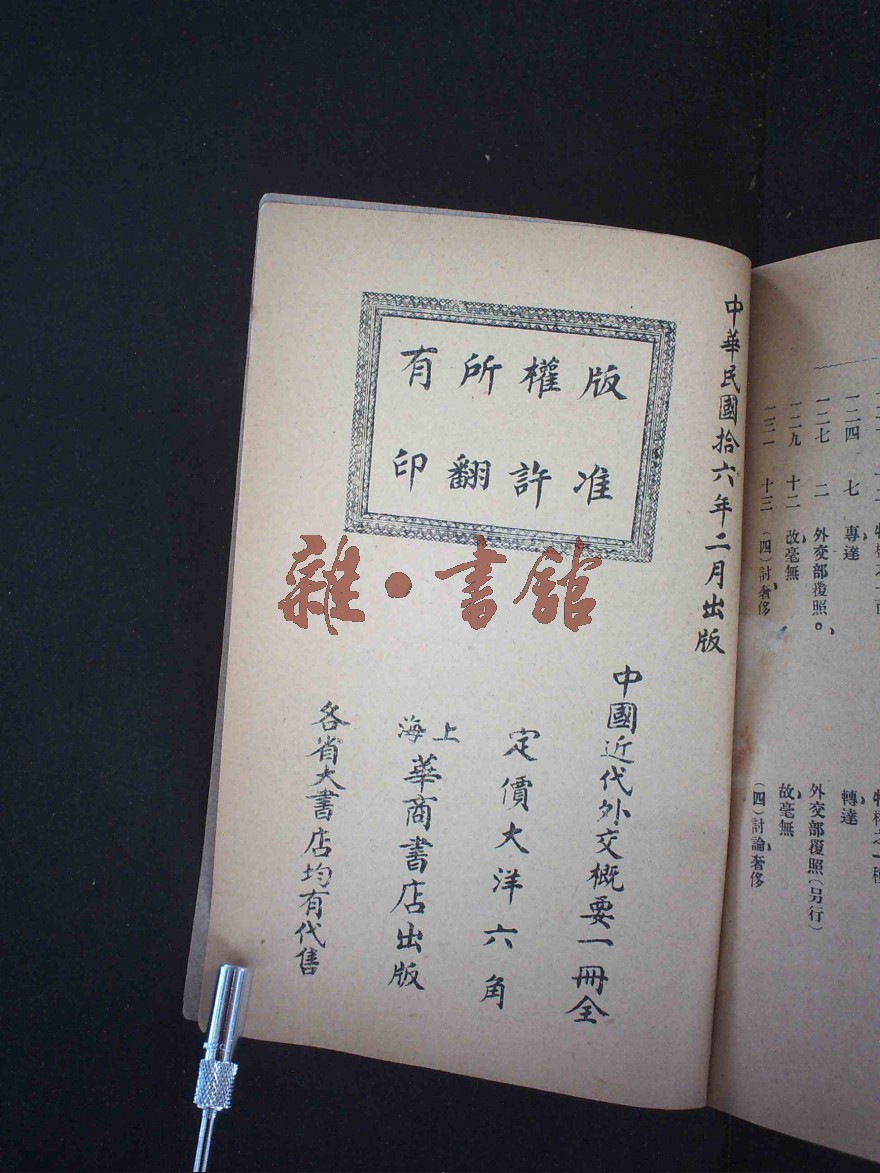 一二四 七 專達 轉達
一二七 二 外交部覆照。 外交部覆照（另行）
一二九 十二 故毫無 故毫無
一三一 十三 （四）討奢侈 （四）討論奢侈
中華民國拾六年二月出版
版權所有
准許翻印
中國近代外交概要一冊全
定價大洋六角
上海華商書店出版
各省大書店均有代售
雜·書館